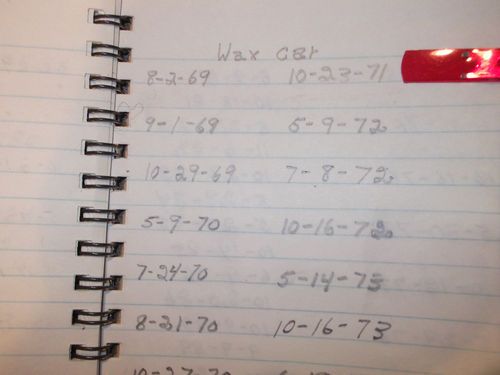 Wax Car
8-2-69 10-23-71
9-1-69 5-9-72
10-29-69 7-8-72
5-9-70 10-16-72
7-24-70 5-14-73
8-31-70 10-16-73